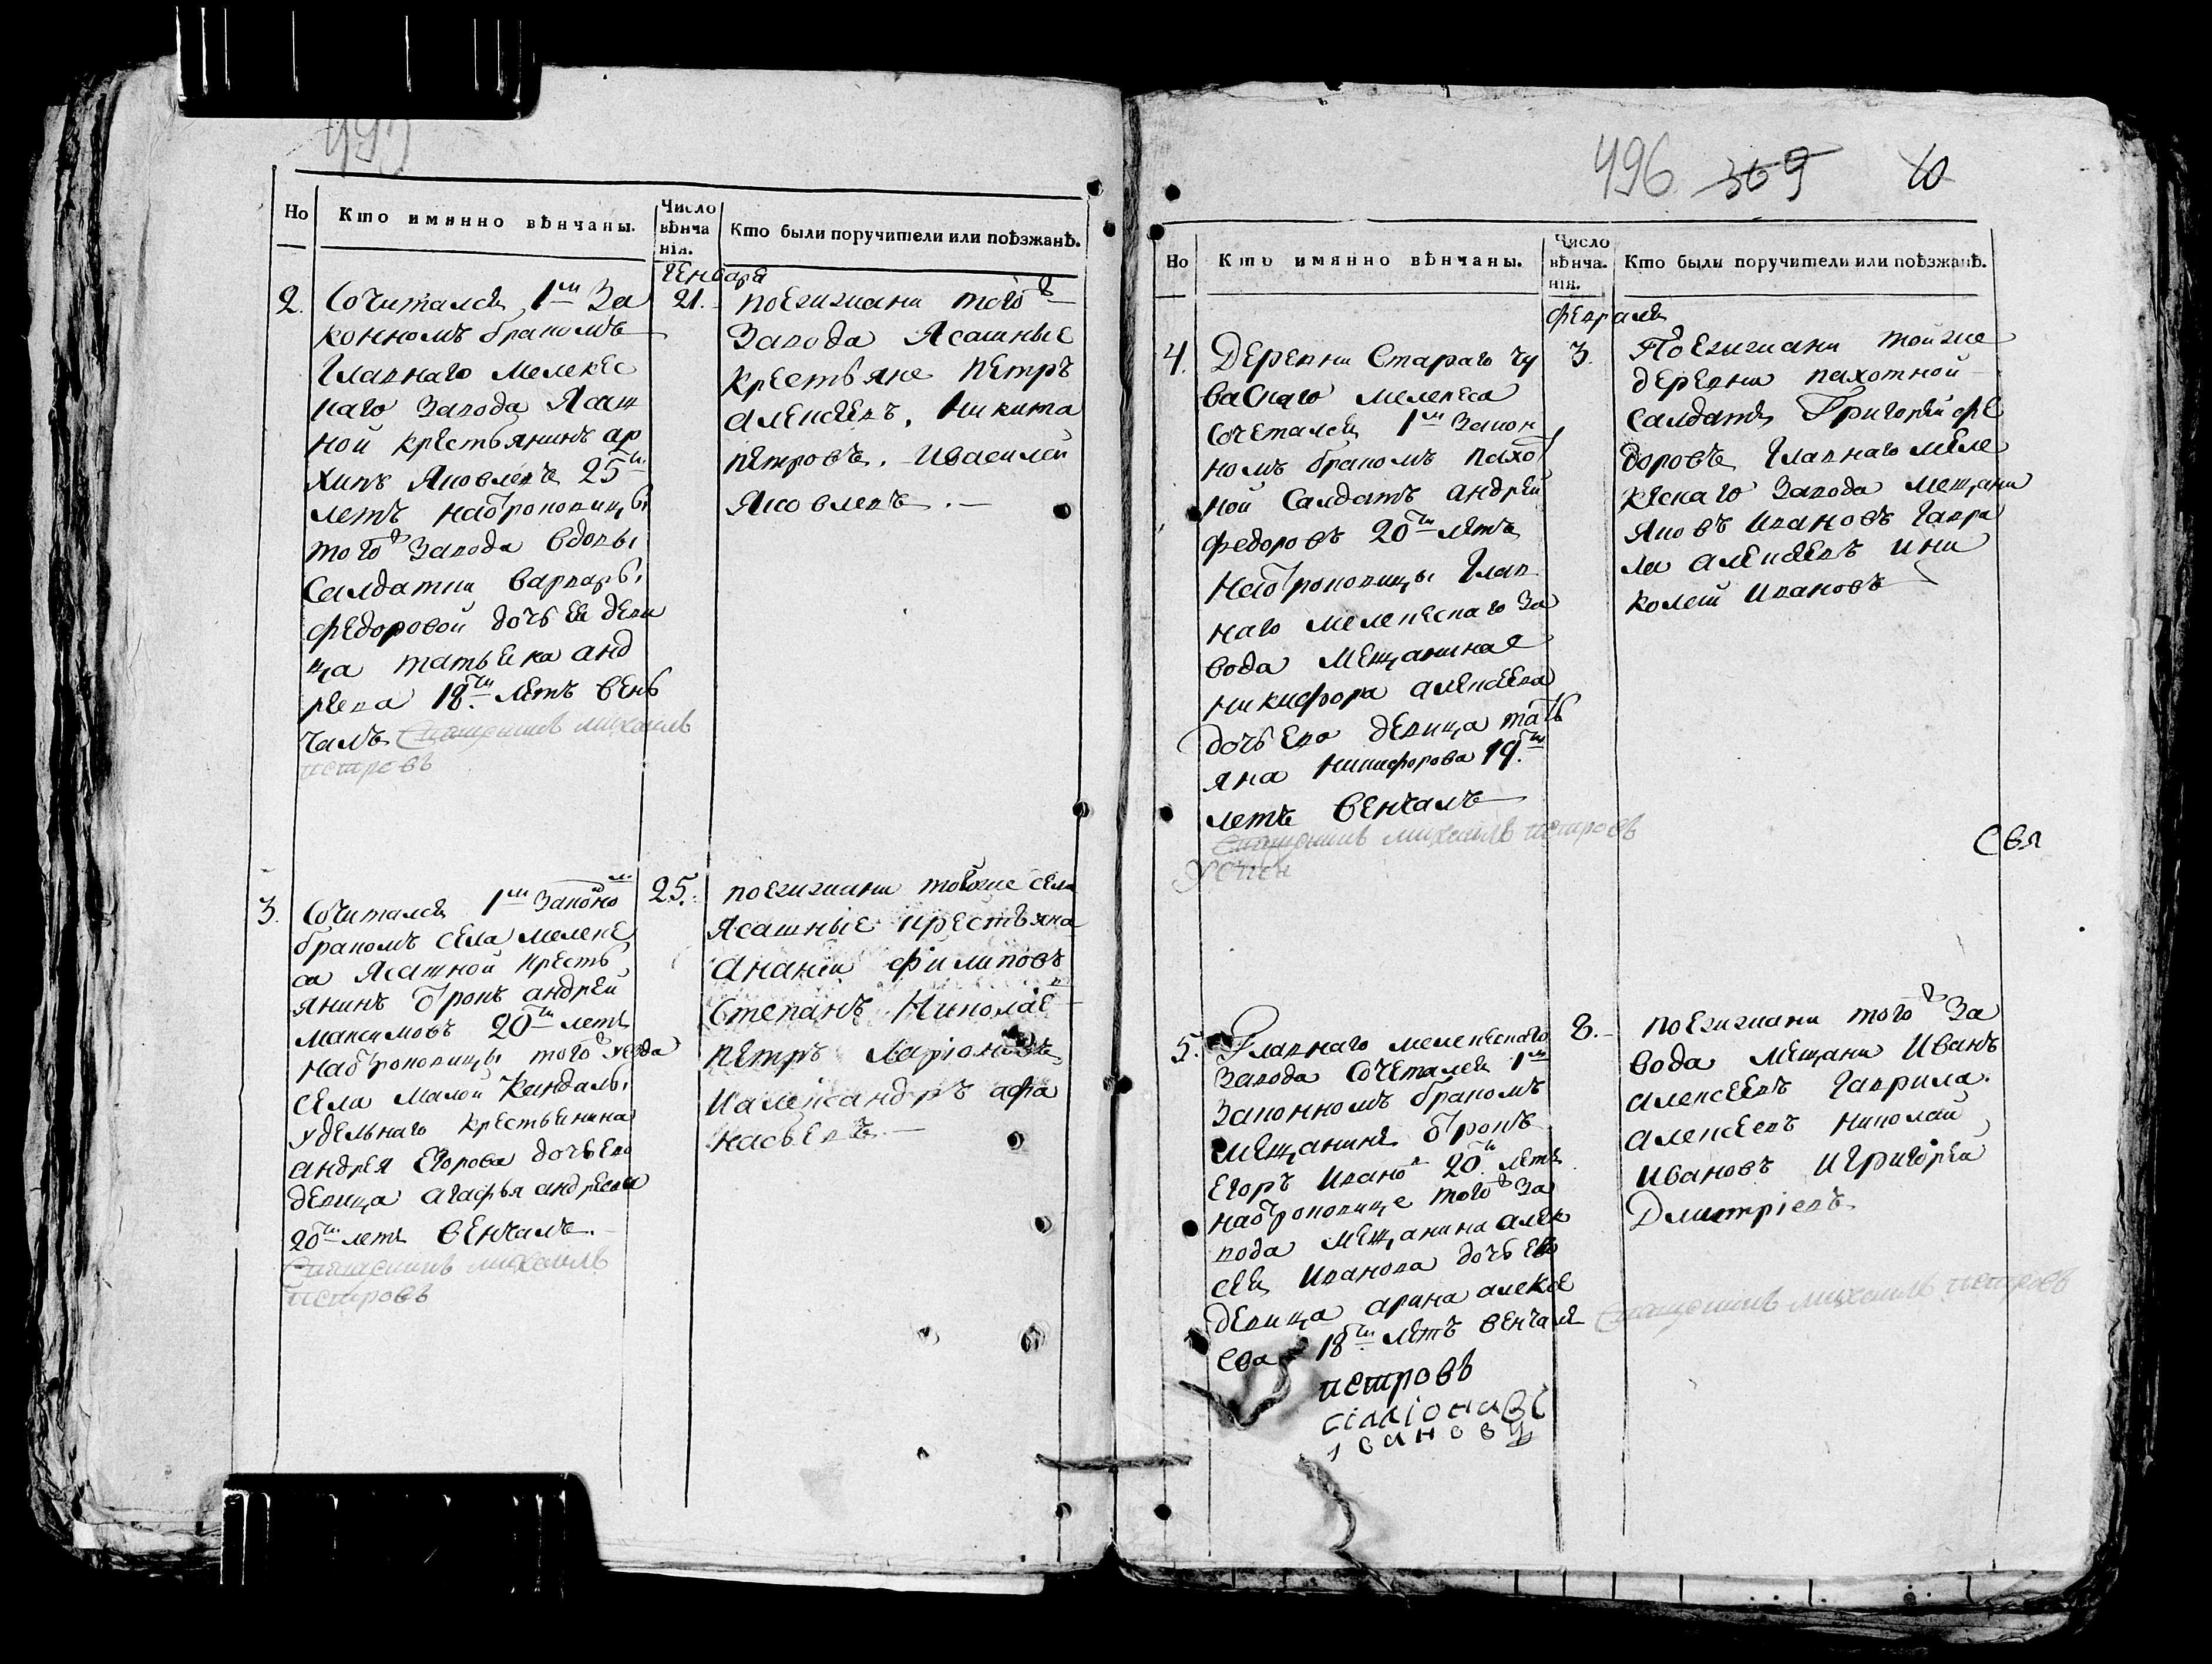 495
Но
Кто имянно вѣнчаны.
Число вѣнча нія.
Кто были поручители или поѣзжанѣ.
Генваря
2.
Сочитался 1м За
коннымъ бракомъ
Главнаго мелекес
каго завода Ясаш
ной крестьянинъ ар
хипъ Яковлевъ 25ти
летъ на отроковицы
того ж завода вдовы
салдатки варвары
федоровой дочь ее деви
ца татьяна анд
реева 18ти летъ вень
чалъ Священникъ михаилъ
петровъ
21.
поезжани того ж
завода Ясашные
крестьяне петръ
алексеевъ, никита
петровъ. и василей
яковлевъ.
3.
Сочитался 1м законо м
бракомъ села мелеке
са Ясашной кресть
янинъ отрокъ андрей
максимовъ 20ти летъ
на отроковицы того ж уезда
села малой кандалы
удельнаго крестьенина
андрея егорова дочь ево
девица агафья андреева
20ти летъ венчалъ.
Священникъ михаилъ
петровъ
25.
поезжани того же села
Ясашные крестьяна
ананей филиповъ
степанъ николае в
петръ ларіоновъ
и александръ афа
насьевъ.
496 369 10
Но
Кто имянно вѣнчаны.
Число вѣнча. нія.
Кто были поручители или поѣзжанѣ.
февраля
4.
деревни Стараго чу
васкаго мелекеса
сочетался 1м закон
нымъ бракомъ пахот
ной салдатъ андрей
федоровъ 20ти летъ
на отроковицы глав
наго мелекескаго за
вода мещанина
никифора алексеева
дочь ево девица тать
яна никифорова 19ти
летъ венчалъ
Священникъ михаилъ петровъ
3.
Поезжани той же
деревни пахотной
салдатъ Григорей фе
доровъ главнаго меле
кескаго завода мещани
яковъ ивановъ гаври
ла алексеевъ и ни
колай ивановъ
Свя
5.
Главнаго мелекескаго
завода сочетался 1м
законнымъ бракомъ
мещанинъ отрокъ
егоръ ивано в 20ти летъ
на отроковице того ж за
вода мещанина алек
сея иванова дочь ево
девица арина алексе
ева 18ти летъ венчалъ
Священникъ михаилъ петровъ
8.
поезжани того ж за
вода мещани иванъ
алексеевъ гаврила
алексеевъ николай
ивановъ и григорей
дмитріевъ
петровъ